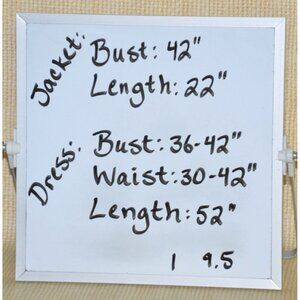 Jacket: Bust: 42"
Length: 22"
Dress: Bust: 36-42"
Waist: 30-42"
Length: 52"
1 9.5